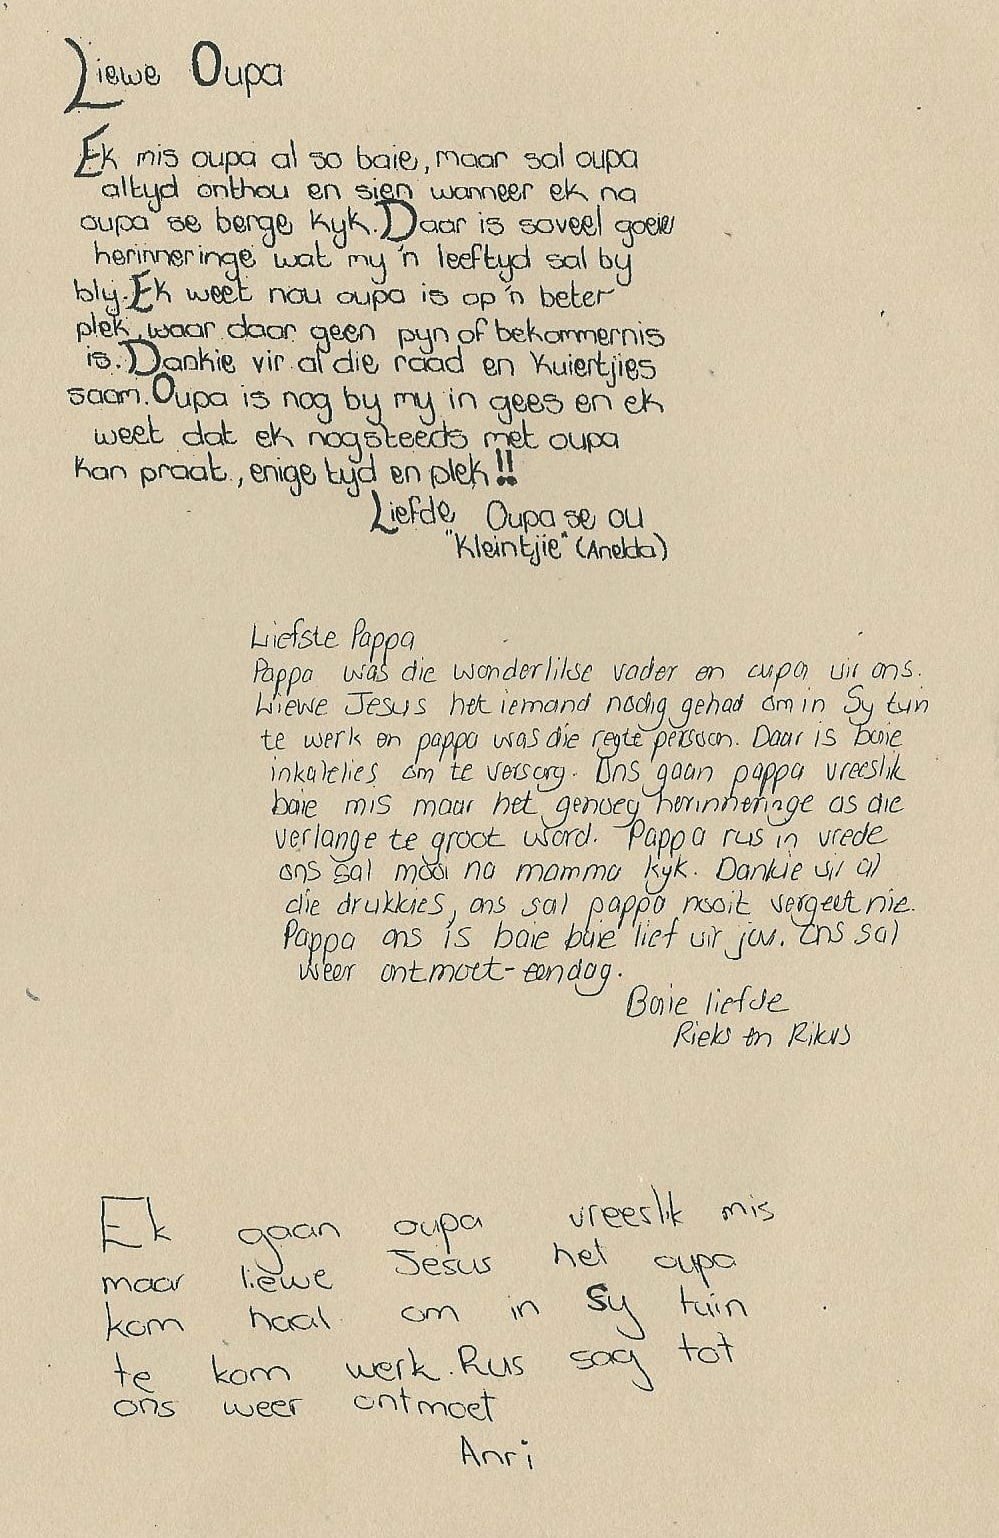 Liewe Oupa
Ek mis oupa al so baie, maar sal oupa
altyd onthou en sien wanneer ek na
oupa se berge kyk. Daar is soveel goeie
herinneringe wat my 'n leeftyd sal by
bly. Ek weet nou oupa is op 'n beter
plek, waar daar geen pyn of bekommernis
is. Dankie vir al die raad en kuiertjies
saam. Oupa is nog by my in gees en ek
weet dat ek nogsteeds met oupa
kan praat, enige tyd en plek!!
Liefde Oupa se ou
"Kleintjie" (Anelda)
Liefste Pappa
Pappa was die wonderlikse vader en oupa vir ons.
Liewe Jesus het iemand nodig gehad om in Sy tuin
te werk en pappa was die regte persoon. Daar is baie
inkalelies om te versorg. Ons gaan pappa vreeslik
baie mis maar het genoeg herinneringe as die
verlange te groot word. Pappa rus in vrede
ons sal mooi na mamma kyk. Dankie vir al
die drukkies, ons sal pappa nooit vergeet nie.
Pappa ons is baie baie lief vir jou. Ons sal
weer ontmoet - eendag.
Baie liefde
Rieks en Rikus
Ek gaan oupa vreeslik mis
maar liewe Jesus het oupa
kom haal om in Sy tuin
te kom werk. Rus sag tot
ons weer ontmoet
Anri